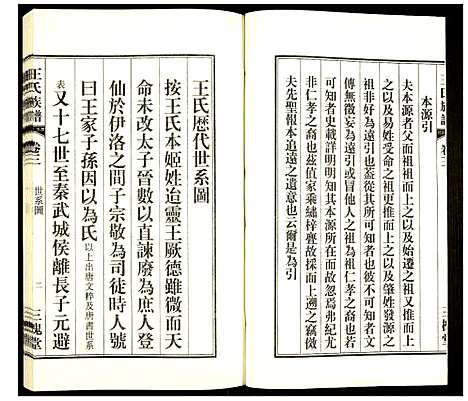 王氏族譜 卷三
本源引
夫本源者父而祖祖而上之以及始遷之祖又推而上
之以及易姓受命之祖更推而上之以及肇姓發源之
祖非好為遠引也蓋從其所可知也彼不可知者文
獻無徵故妄為遠引引他人之祖為祖仁孝之裔若
傳無可疑者明明知其本源所在而故忽焉弗紀尤
非仁孝之裔也茲值家乘續梓亹故採而上遡之竊倣
夫先聖報本追遠之遺意也云爾是為引
三槐堂
王氏歷代世系圖
按王氏本姬姓迨靈王厥德雖微而天
命未改太子晉數以直諫廢為庶人登
仙於伊洛之間子宗敬為司徒時人號
曰王家子孫因以為氏以上出唐文粹及唐書世系
表又十七世至秦武城侯離長子元避
王氏族譜 卷三 世系圖 二 三槐堂